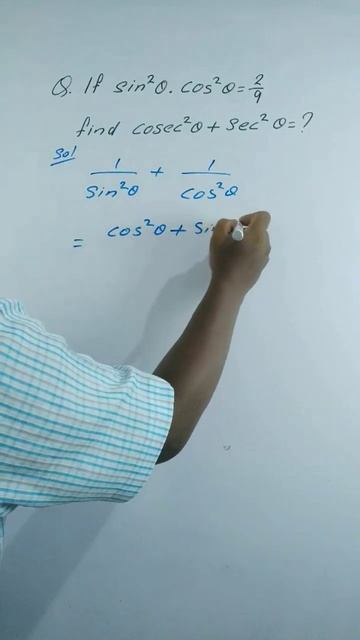 Q. If sin²θ. cos²θ = 2/9
find cosec²θ + sec²θ = ?
Sol
1/sin²θ + 1/cos²θ
= cos²θ + si